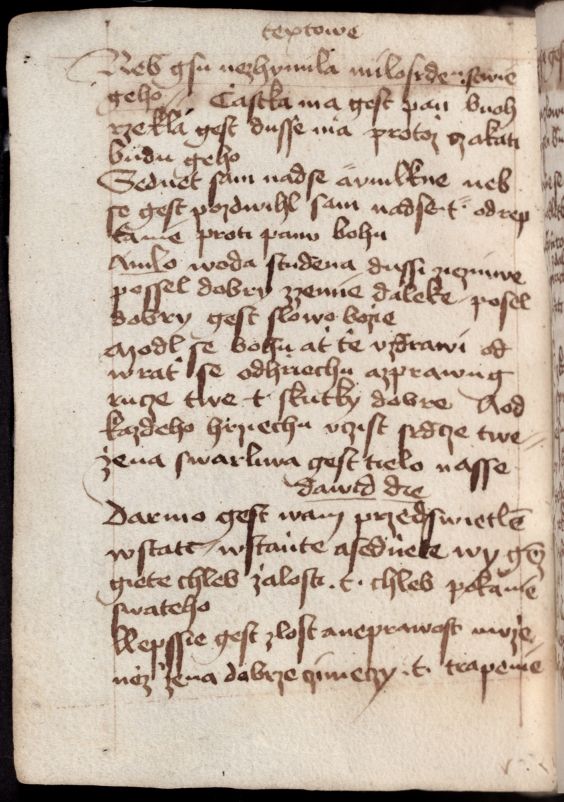 textowe
Neb gsu nezhynula milosrdenstwie
geho Castka ma gest pan buoh
rzekla gest dusse ma protoz czakati
budu geho
Sednet sam nadse a vmlkne neb
se gest pozdwihl sam nadse .t. odrep
tanie proti panu bohu
Amlo woda studena dussi ziezniwe
possel dobry zzemie daleke posel
dobry gest slowo bozie
Modl se bohu at te vzdrawi od
wrat se odhriechu azprawug
rucze twe .t. skutky dobre Aod
kazdeho hrziechu vczist srdcze twe
zena swarliwa gest tielo nasse
Dawid die
Darmo gest wam przedswietle
wstati wstante asednete wy genz
giete chleb zalosti .t. chleb pokanie
swateho
Lepssie gest zlost aneprawost muze
nez zena dobrze czinieczy .t. trapenie